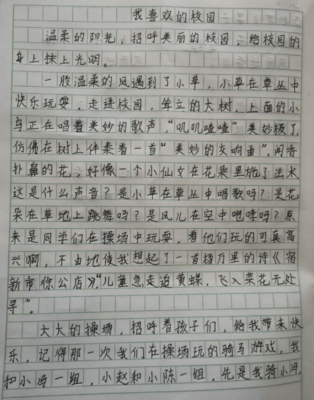 我喜欢的校园
温柔的阳光，招呼美丽的校园，给校园的
身上抹上光明。
一股温柔的风遇到了小草，小草在草丛中
快乐玩耍，走进校园，耸立的大树，上面的小
鸟正在唱着美妙的歌声，“叽叽喳喳”美妙极了，
仿佛在树上伴奏着一首“美妙的交响曲”，闻香
扑鼻的花，好像一个小仙女在花朵里施了法术
这是什么声音？是小草在草丛中唱歌吗？是花
朵在草地上跳舞吗？是风儿在空中吧哇吗？原
来是同学们在操场中玩耍，看他们玩的可真高
兴啊，不由地使我想起了一首杨万里的诗《宿
新市徐公店》，“儿童急走追黄蝶，飞入菜花无处
寻”。
大大的操场，招呼着孩子们，给我带来快
乐，记得那一次我们在操场玩的骑马游戏，我
和小冯一组，小赵和小陈一组，先是我骑小冯